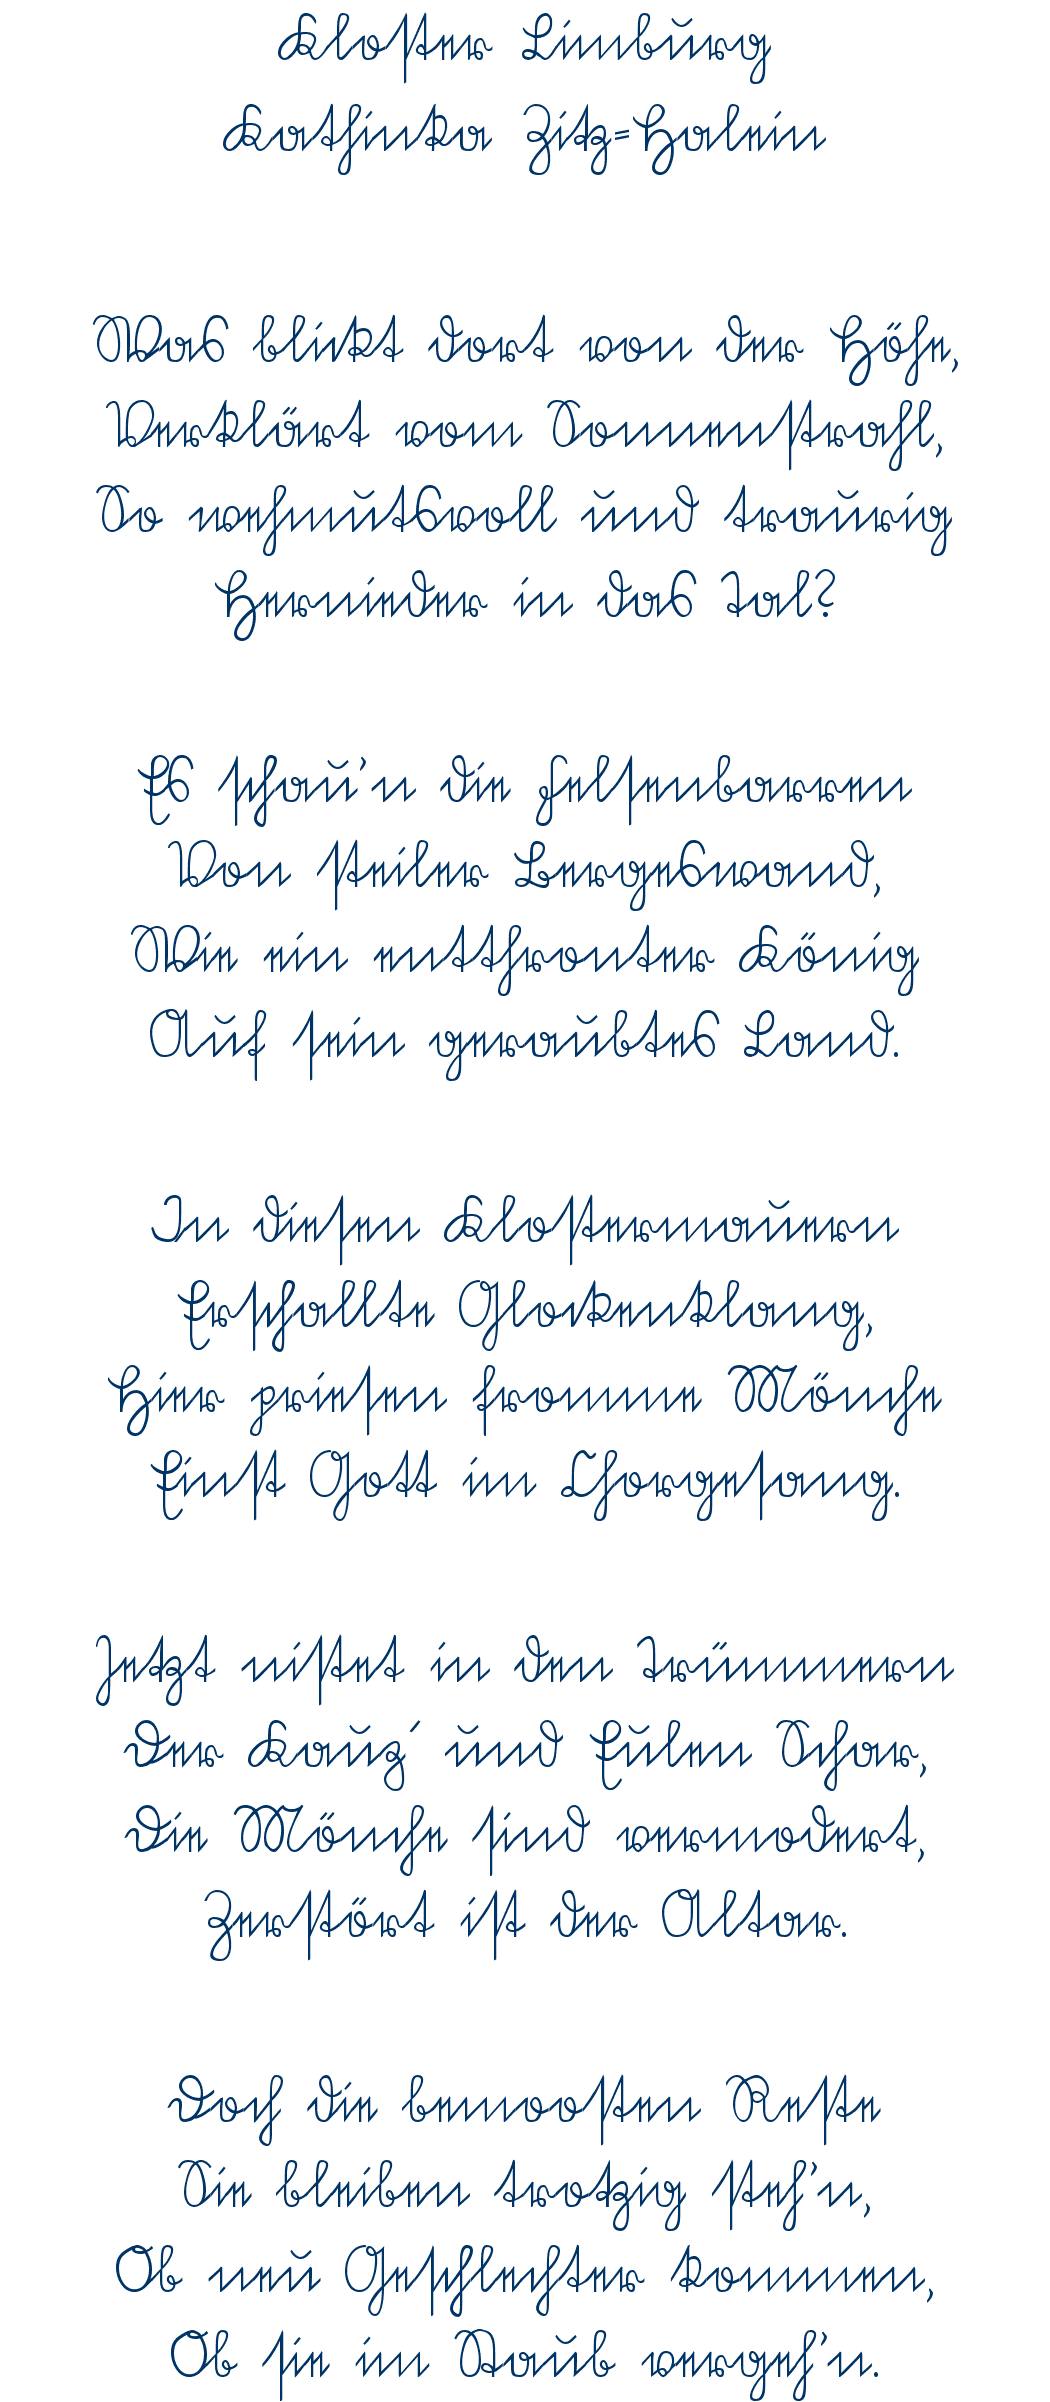 Kloster Limburg
Kathinka Zitz=Halein
Was blickt dort von der Höhe,
Verklärt vom Sonnenstrahl,
So wehmutsvoll und traurig
Hernieder in das Tal?
Es schau'n die Felsenbarren
Von steiler Bergeswand,
Wie ein entthronter König
Auf sein geraubtes Land.
In diesen Klostermauern
Erschallte Glockenklang,
Hier priesen fromme Mönche
Einst Gott im Chorgesang.
Jetzt nistet in den Trümmern
Der Kauz´ und Eulen Schar,
Die Mönche sind vermodert,
Zerstört ist der Altar.
Doch die bemoosten Reste
Sie bleiben trotzig steh'n,
Ob neu Geschlechter kommen,
Ob sie im Staub vergeh'n.